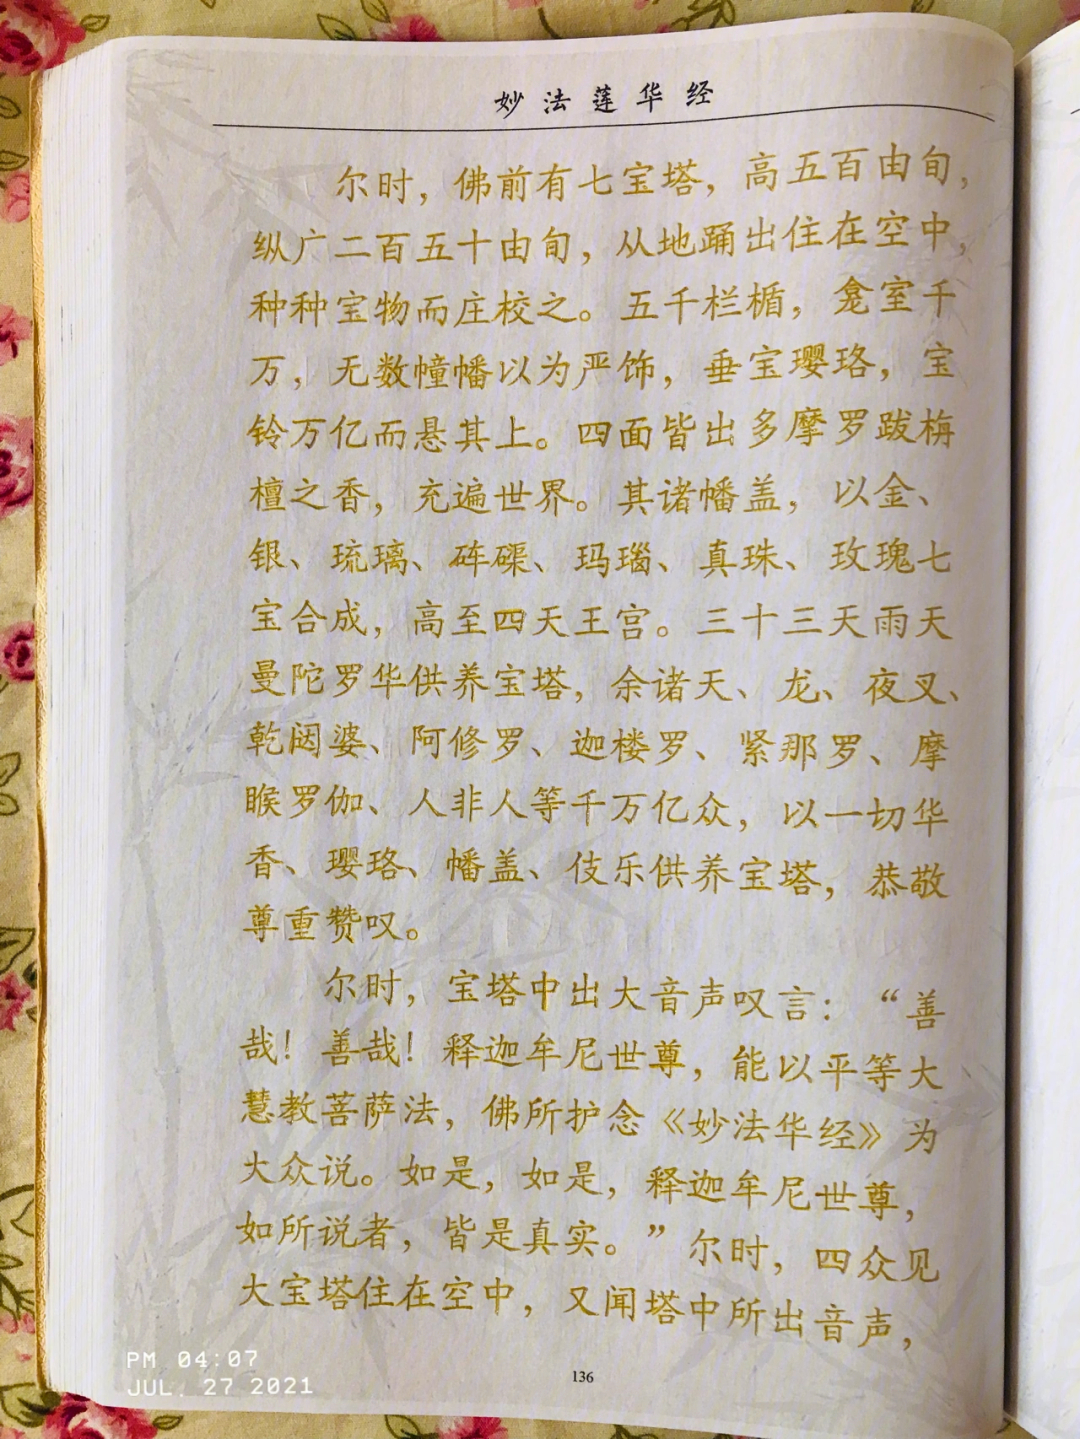 妙法莲华经
尔时，佛前有七宝塔，高五百由旬，
纵广二百五十由旬，从地踊出住在空中，
种种宝物而庄校之。五千栏楯，龛室千
万，无数幢幡以为严饰，垂宝璎珞，宝
铃万亿而悬其上。四面皆出多摩罗跋栴
檀之香，充遍世界。其诸幡盖，以金、
银、琉璃、砗磲、玛瑙、真珠、玫瑰七
宝合成，高至四天王宫。三十三天雨天
曼陀罗华供养宝塔，余诸天、龙、夜叉、
乾闼婆、阿修罗、迦楼罗、紧那罗、摩
睺罗伽、人非人等千万亿众，以一切华
香、璎珞、幡盖、伎乐供养宝塔，恭敬
尊重赞叹。
尔时，宝塔中出大音声叹言：“善
哉！善哉！释迦牟尼世尊，能以平等大
慧教菩萨法，佛所护念《妙法华经》为
大众说。如是，如是，释迦牟尼世尊，
如所说者，皆是真实。”尔时，四众见
大宝塔住在空中，又闻塔中所出音声，
136
PM 04:07
JUL. 27 2021